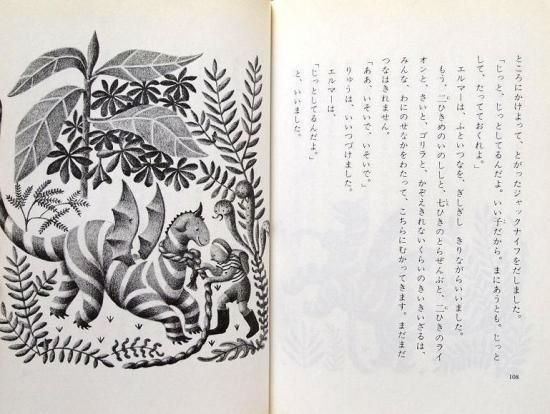 ところにかけよって、とがったジャックナイフをだしました。
「じっと、じっとしてるんだよ。いい子だから。まにあうとも。じっと
して、たってておくれよ。」
エルマーは、ふといつなを、ぎしぎし きりながらいいました。
もう、二ひきめのいのししと、七ひきのとらぜんぶと、二ひきのライ
オンと、さいと、ゴリラと、かぞえきれないくらいのきいきいざるは、
みんな、わにのせなかをわたって、こちらにむかってきます。まだまだ
つなはきれません。
「ああ、いそいで、いそいで。」
りゅうは、いいつづけました。
エルマーは、
「じっとしてるんだよ。」
と、いいました。
108